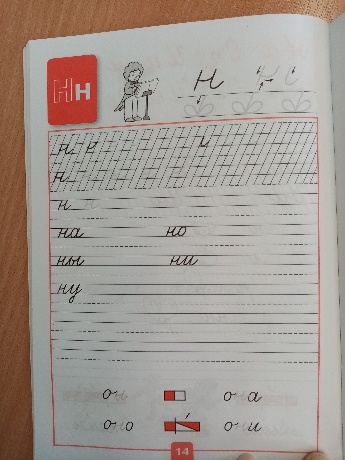 Нн н
н н н
н
н
на но
ны ни
ну
он она
оно они
14